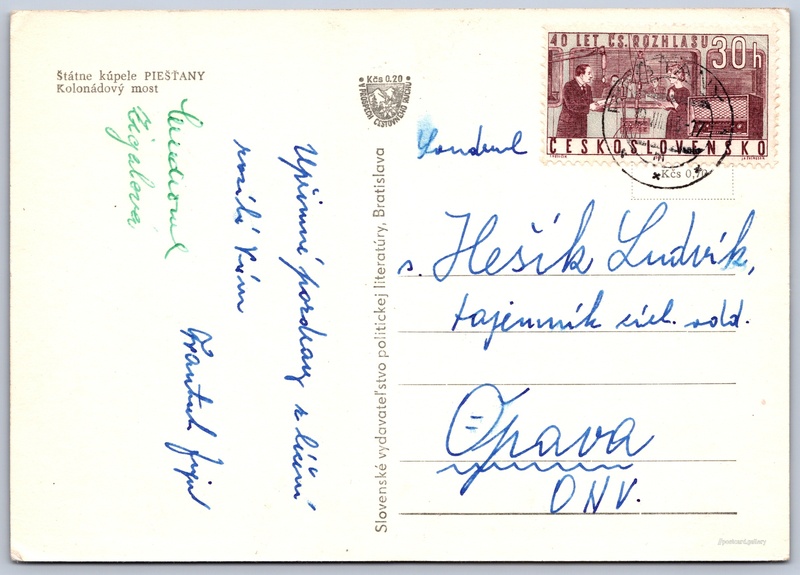 Štátne kúpele PIEŠŤANY
Kolonádový most
Kčs 0.20
Upřímné pozdravy z léčení
Vám
František
Slovenské vydavateľstvo politickej literatúry, Bratislava
40 LET ČS. ROZHLASU
30h
ČESKOSLOVENSKO
Kčs 0,70
s. Hešík Ludvík,
tajemník odd.
Opava
ONV.